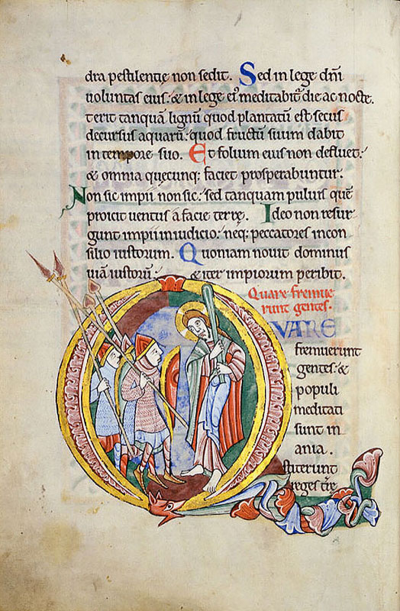 dra pestilentie non sedit. Sed in lege dn̄i
uoluntas eius: & in lege ei᾽ meditabit᾽ die ac nocte.
t erit tanquā lignū quod plantatū est secus
decursus aquarū: quod fructū suum dabit
in tempore suo. Et folium eius non defluet:
& omnia quecunq; faciet prosperabuntur.
Non sic impii non sic: sed tanquam puluis quē
proicit uentus a facie terrę. Ideo non resur
gunt impii in iudicio: neq; peccatores in con
silio iustorum. Quoniam nouit dominus
uiā iustorū: & iter impiorum peribit.
Quare fremue
runt gentes.
QVARE
fremuerunt
gentes: &
populi
meditati
sunt in
ania.
stiterunt
reges tr̄e